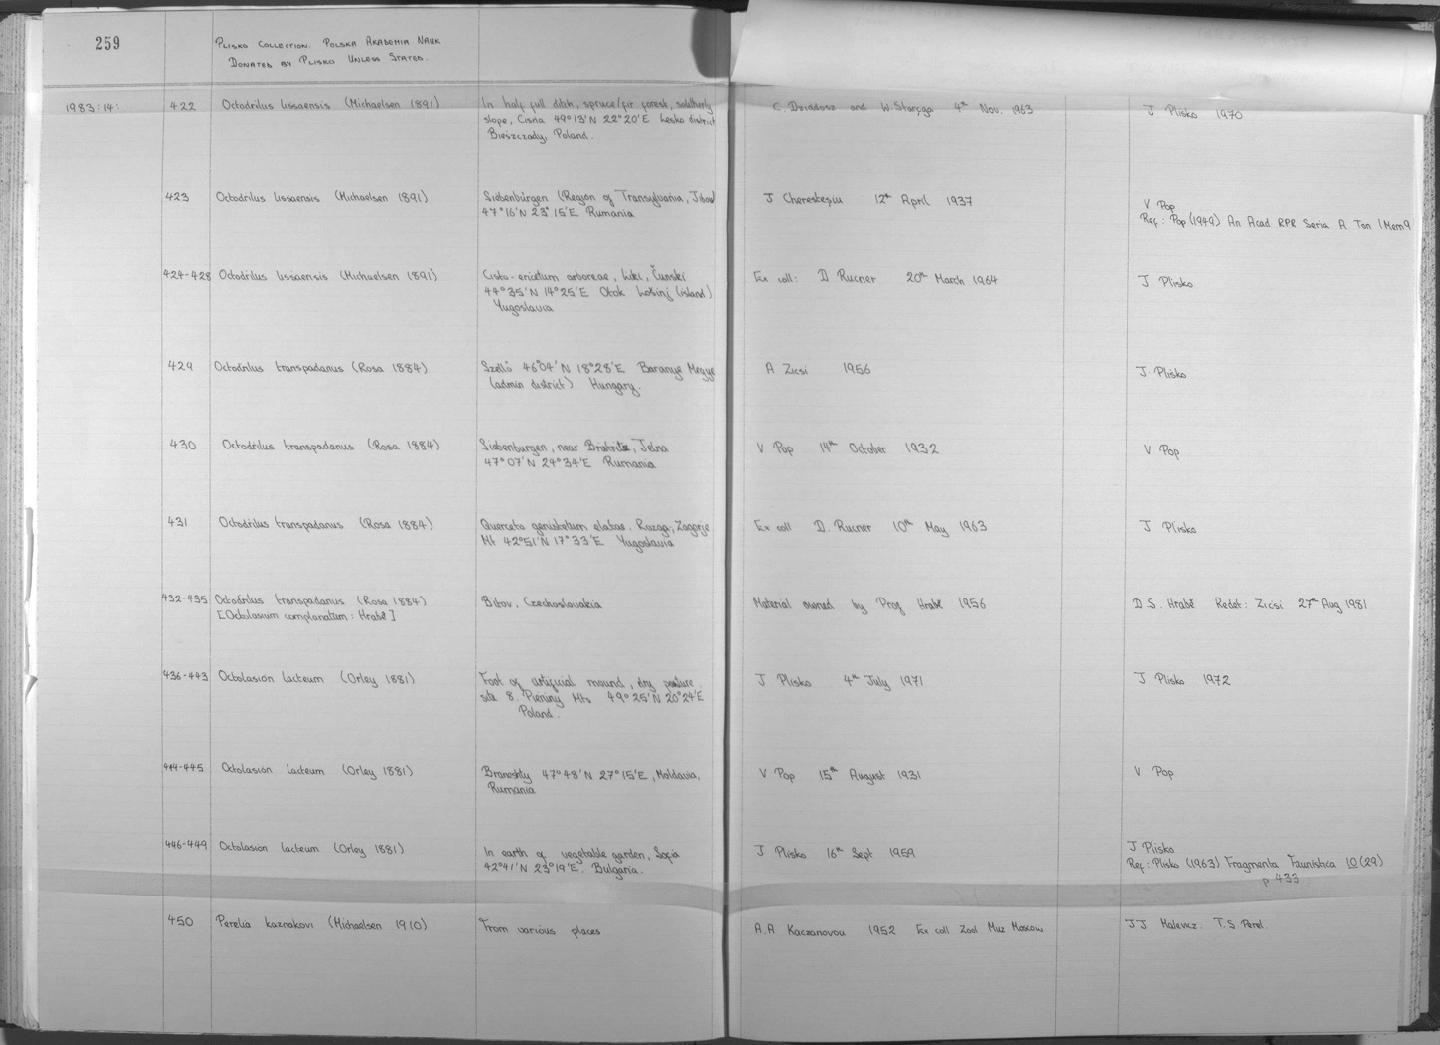 259
PLISKO COLLECTION. POLSKA AKADEMIA NAUK
DONATED BY PLISKO UNLESS STATED.
1983:14: 422 Octodrilus lissaensis (Michaelsen 1891) In half full ditch, spruce/fir forest, southerly C. Dziadosz and W. Staręga 4th Nov. 1963 J Plisko 1970
slope, Cisna 49°13'N 22°20'E Lesko district
Bieszczady, Poland.
423 Octodrilus lissaensis (Michaelsen 1891) Siebenbürgen (Region of Transylvania, Jibou) J 12th April 1937 V Pop
47°16'N 23°15'E Rumania Ref: Pop (1949) An Acad RPR Seria A Tom 1 Mem 9
424-428 Octodrilus lissaensis (Michaelsen 1891) Cisto-ericetum arboreae, Čunski Ex coll: D Rucner 20th March 1964 J Plisko
44°35'N 14°25'E Otok Lošinj (island)
Yugoslavia
429 Octodrilus transpadanus (Rosa 1884) 46°04'N 18°28'E Baranya Megye A Zicsi 1956 J. Plisko
(admin district) Hungary.
430 Octodrilus transpadanus (Rosa 1884) Siebenburgen, near Bistritz, Jelna V Pop 14th October 1932 V Pop
47°07'N 24°34'E Rumania
431 Octodrilus transpadanus (Rosa 1884) Querceto genistetum elatae. Zagorje Ex coll D. Rucner 10th May 1963 J Plisko
Mt 42°51'N 17°33'E Yugoslavia
432-435 Octodrilus transpadanus (Rosa 1884) Bitov, Czechoslovakia Material owned by Prof Hrabĕ 1956 D S. Hrabĕ Redet: Zicsi 27th Aug 1981
[Octolasium complanatum: Hrabĕ]
436-443 Octolasion lacteum (Orley 1881) Foot of artificial mound, dry pasture J Plisko 4th July 1971 J Plisko 1972
site 8. Pieniny Mts 49°25'N 20°24'E
Poland.
444-445 Octolasion lacteum (Orley 1881) 47°48'N 27°15'E, Moldavia, V Pop 15th August 1931 V Pop
Rumania
446-449 Octolasion lacteum (Orley 1881) In earth of vegetable garden, Sofia J Plisko 16th Sept 1959 J Plisko
42°41'N 23°19'E. Bulgaria. Ref: Plisko (1963) Fragmenta Faunistica 10 (29)
p 433
450 Perelia kaznakovi (Michaelsen 1910) From various places A.A Kaczanovou 1952 Ex coll Zool Muz Moscow J J Malevicz. T.S Perel.